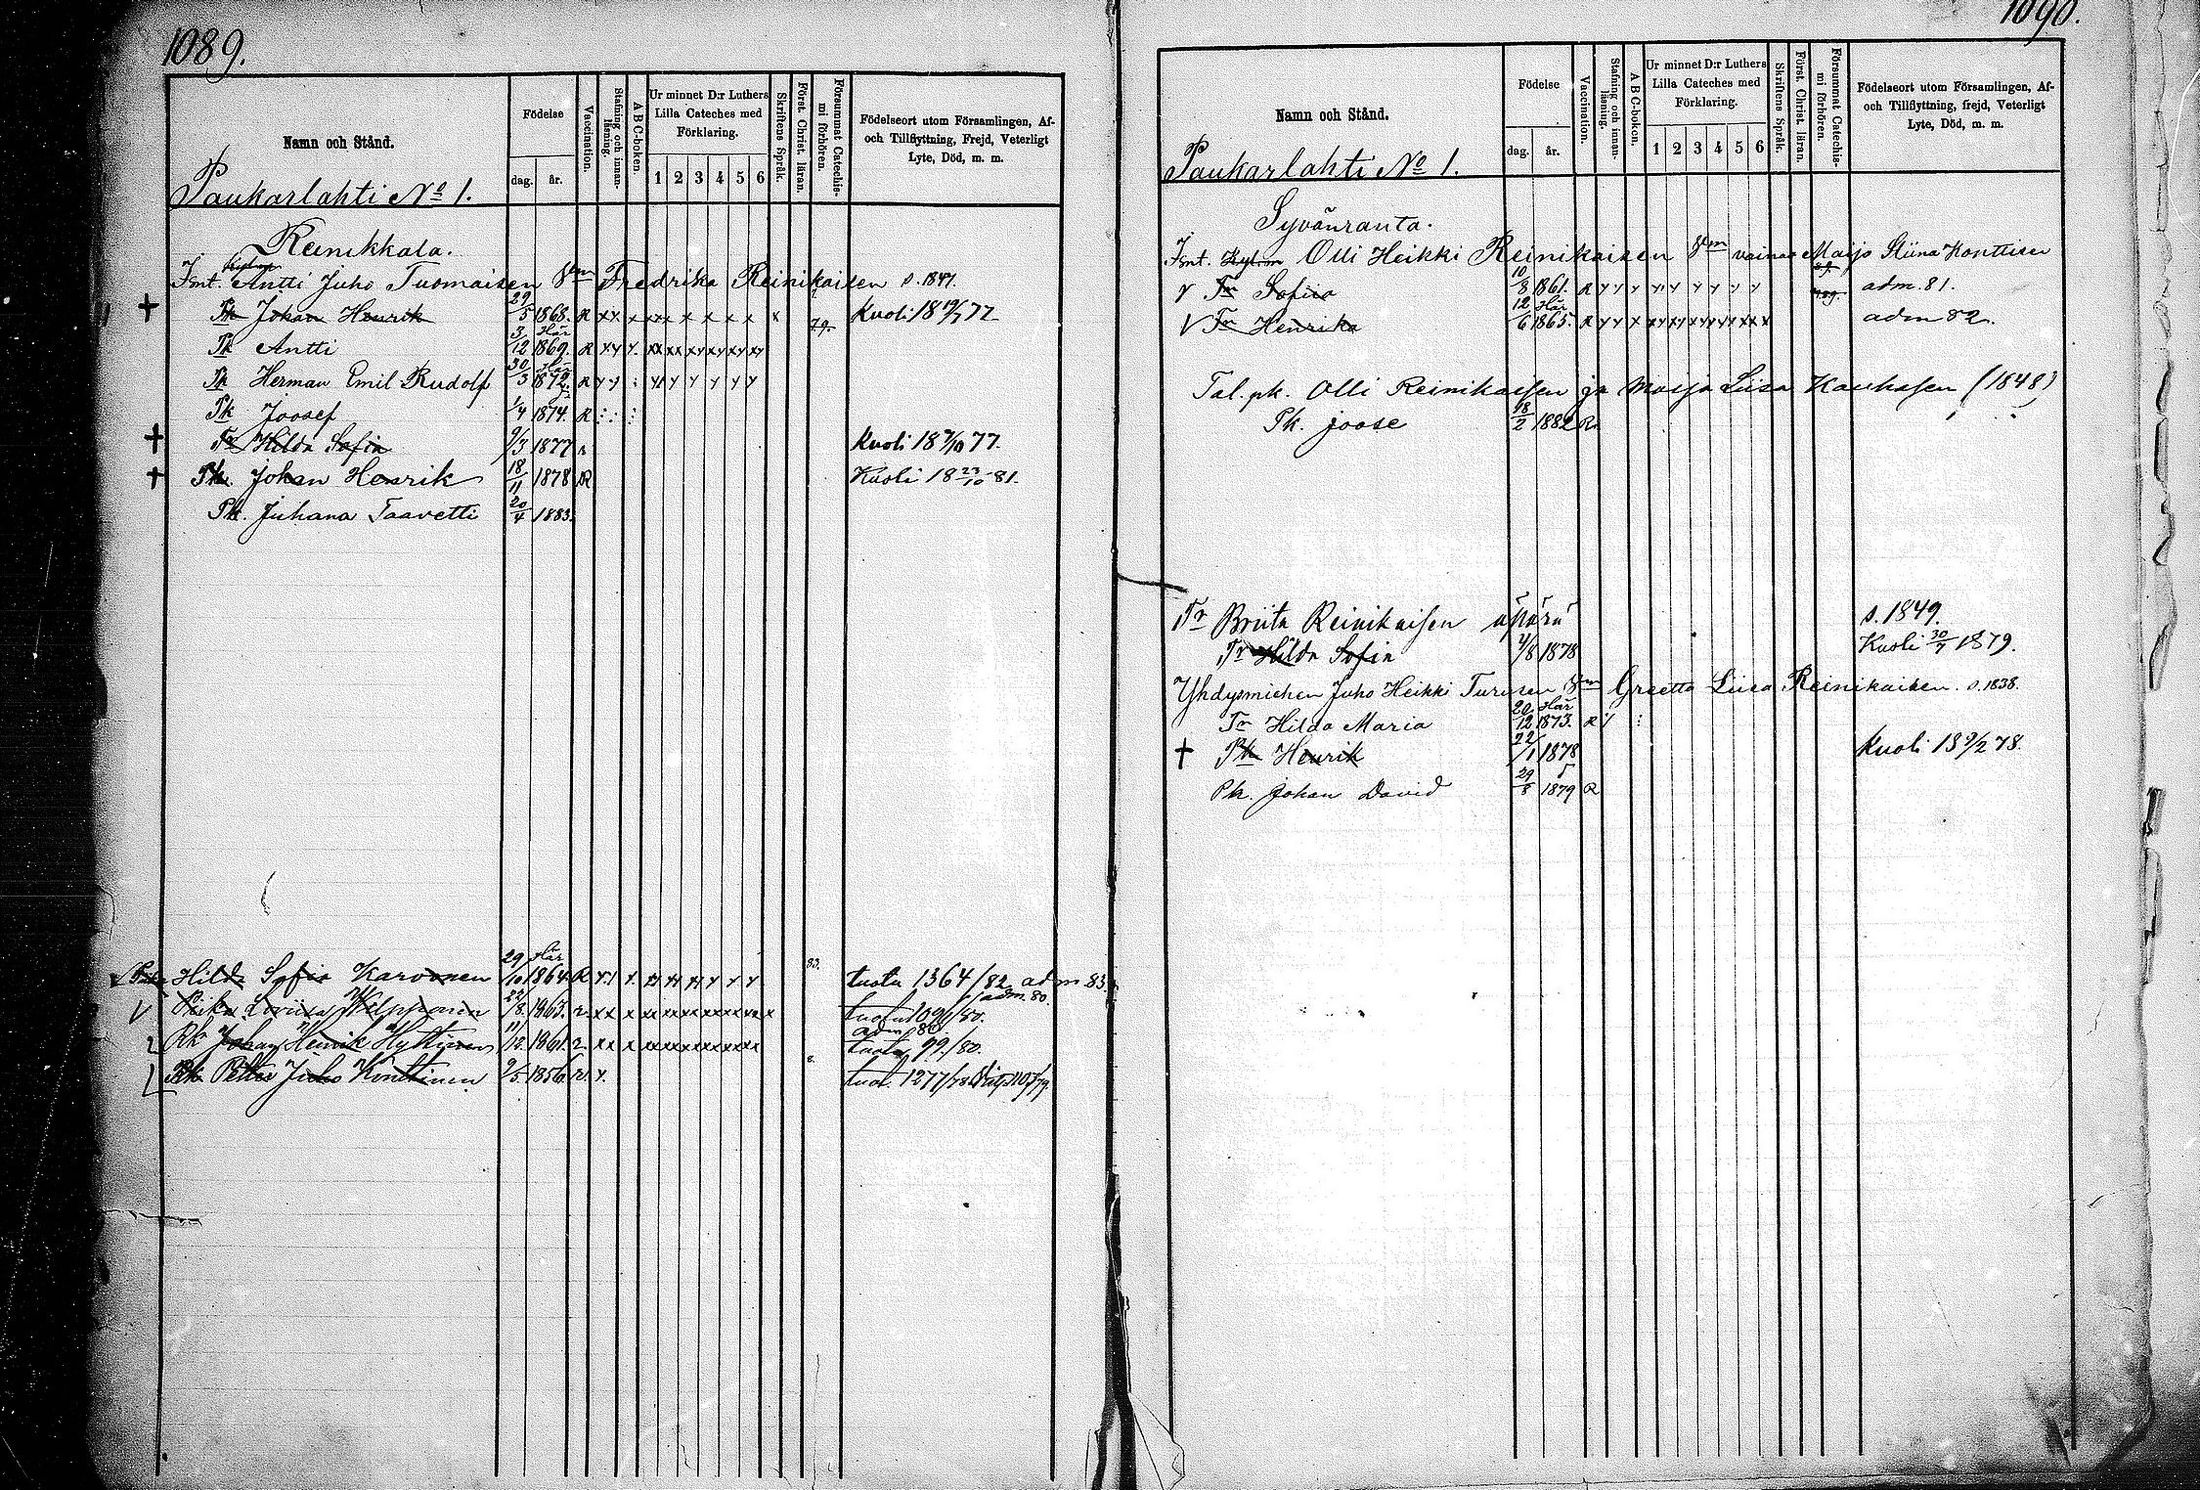 1089.
Namn och Stånd.
Födelse
dag. år.
Vaccination.
Stafning och innanläsning.
ABC-boken.
Ur minnet D:r Luthers Lilla Cateches med Förklaring.
1 2 3 4 5 6
Skriftens Språk.
Först. Christ. läran.
Försummat Catechismi förhören.
Födelseort utom Församlingen, Af- och Tillflyttning, Frejd, Veterligt Lyte, Död, m. m.
Paukarlahti No 1.
Reinikkala.
Ismt. Antti Juho Tuomaisen Fredrika Reinikaisen s. 1847.
Pk Johan Henrik 29/5 1868. R Kuoli 18 19/7 77
Pk Antti 3/12 1869. R 79.
Pk Herman Emil Rudolf 30/3 1872 R
Pk Joosef 1/4 1874. R
Tr Hilda Sofia 9/3 1877 Kuoli 18 7/10 77.
Pk. Johan Henrik 18/11 1878 R Kuoli 18 23/10 81.
Pk. Juhana Taavetti 20/4 1883.
Hilda Sofia Karvonen 29/10 1864 R 83. tuota 1364/82 adm 83
Loviisa 1863. adm. 80. 109/80.
Rk Johan Henrik Hyttinen 11/12 1861. adm 80. tuota 99/80.
Rk Petter Juho Konttinen 9/5 1856 tuot. 1277/78
1090.
Namn och Stånd.
Födelse
dag. år.
Vaccination.
Stafning och innanläsning.
ABC-bokon.
Ur minnet D:r Luthers Lilla Cateches med Förklaring.
1 2 3 4 5 6
Skriftens Språk.
Först. Christ. läran.
Försummat Catechismi förhören.
Födelseort utom Församlingen, Af- och Tillflyttning, frejd, Veterligt Lyte, Död, m. m.
Paukarlahti No 1.
Syvänranta.
Ismt. Olli Heikki Reinikaisen vainaa Maija Stiina Konttisen
Tr Sofiia 10/8 1861. R adm. 81.
Tr Henrika 12/6 1865. R adm 82.
Tal. pk. Olli Reinikaisen ja Maija Liisa Kauhasen (1848)
Pk. Joose 18/2 1882 R
Tr Briita Reinikaisen äpärä s. 1849.
Tr Hilda Sofia 4/8 1878 Kuoli 30/7 1879.
Yhdysmiehen Juho Heikki Turusen Greetta Liisa Reinikaisen. s. 1838.
Tr Hilda Maria 20/12 1873. R
Pk Henrik 22/1 1878 Kuoli 18 9/2 78.
Pk. Johan David 29/8 1879 R